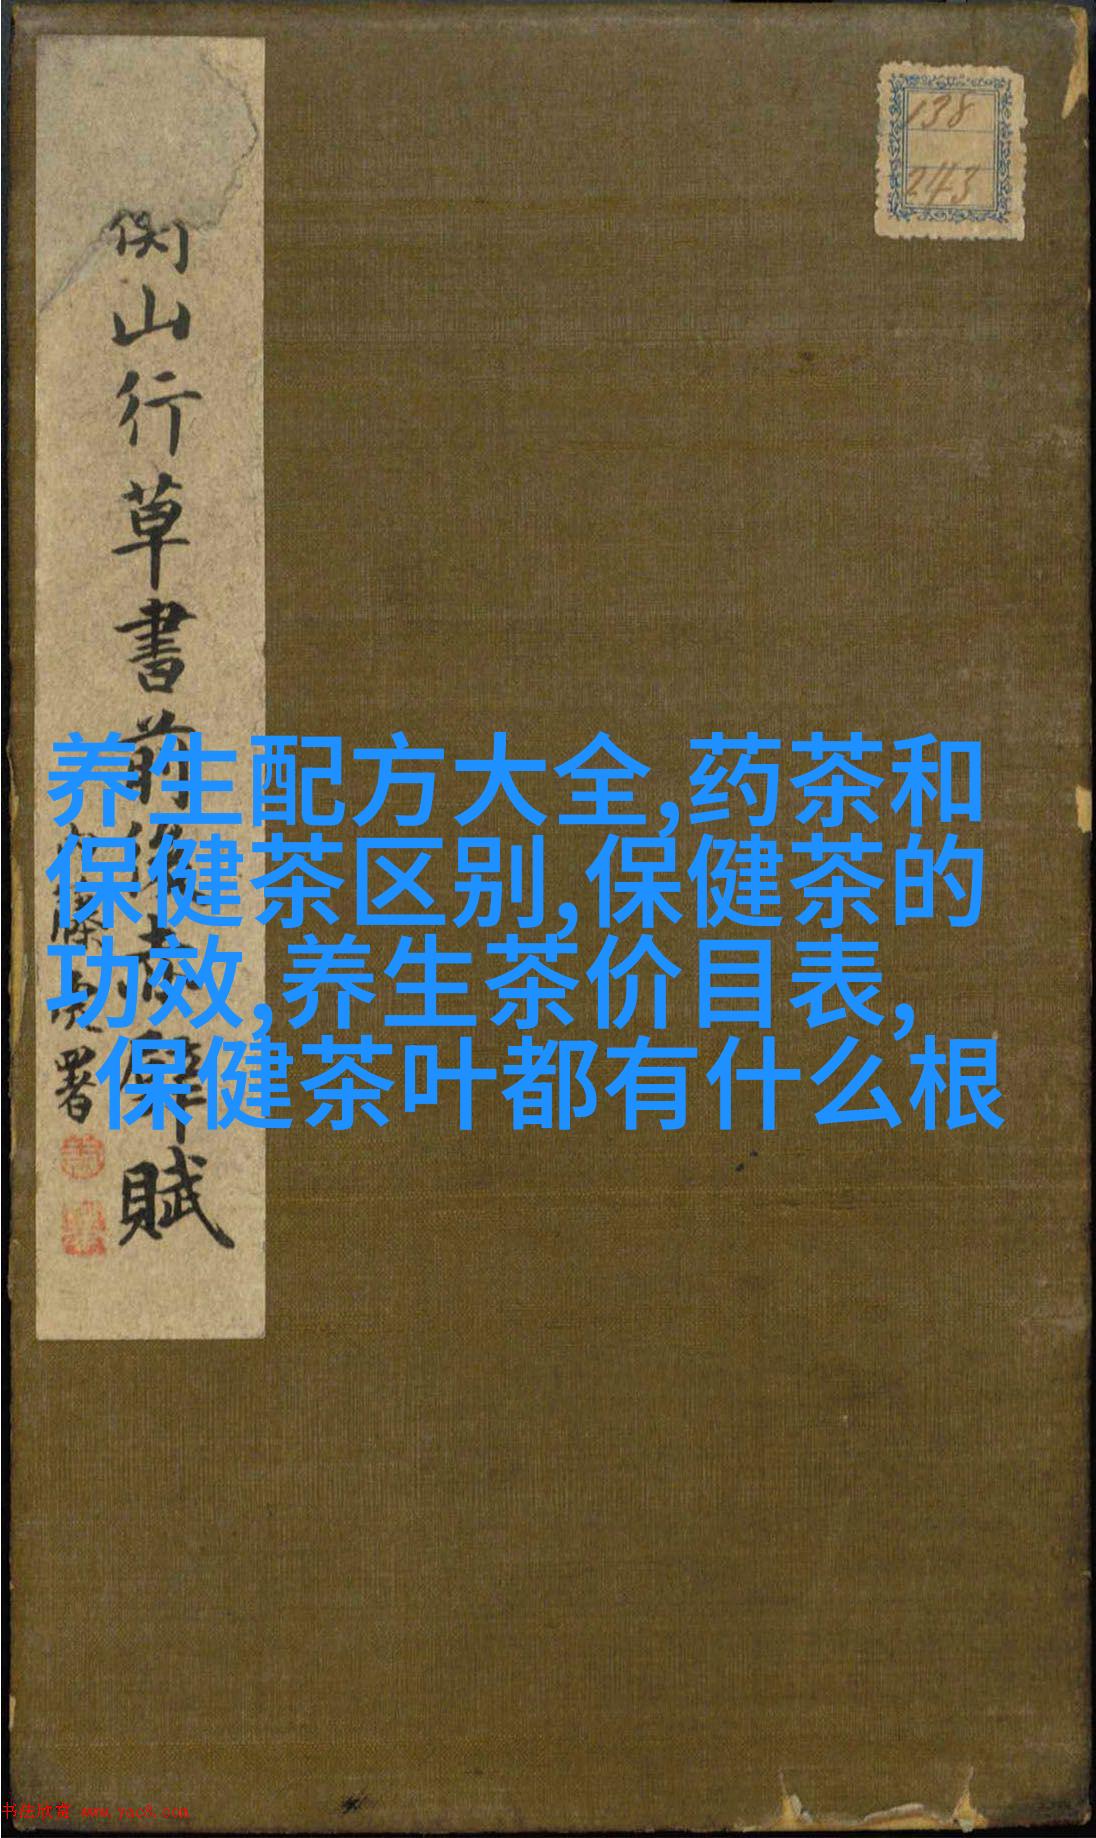 138
243
衡山行草書前後赤壁賦
藤虎署
养生配方大全,药茶和
保健茶区别,保健茶的
功效,养生茶价目表,
保健茶叶都有什么根
书法欣赏 www.yac8.com